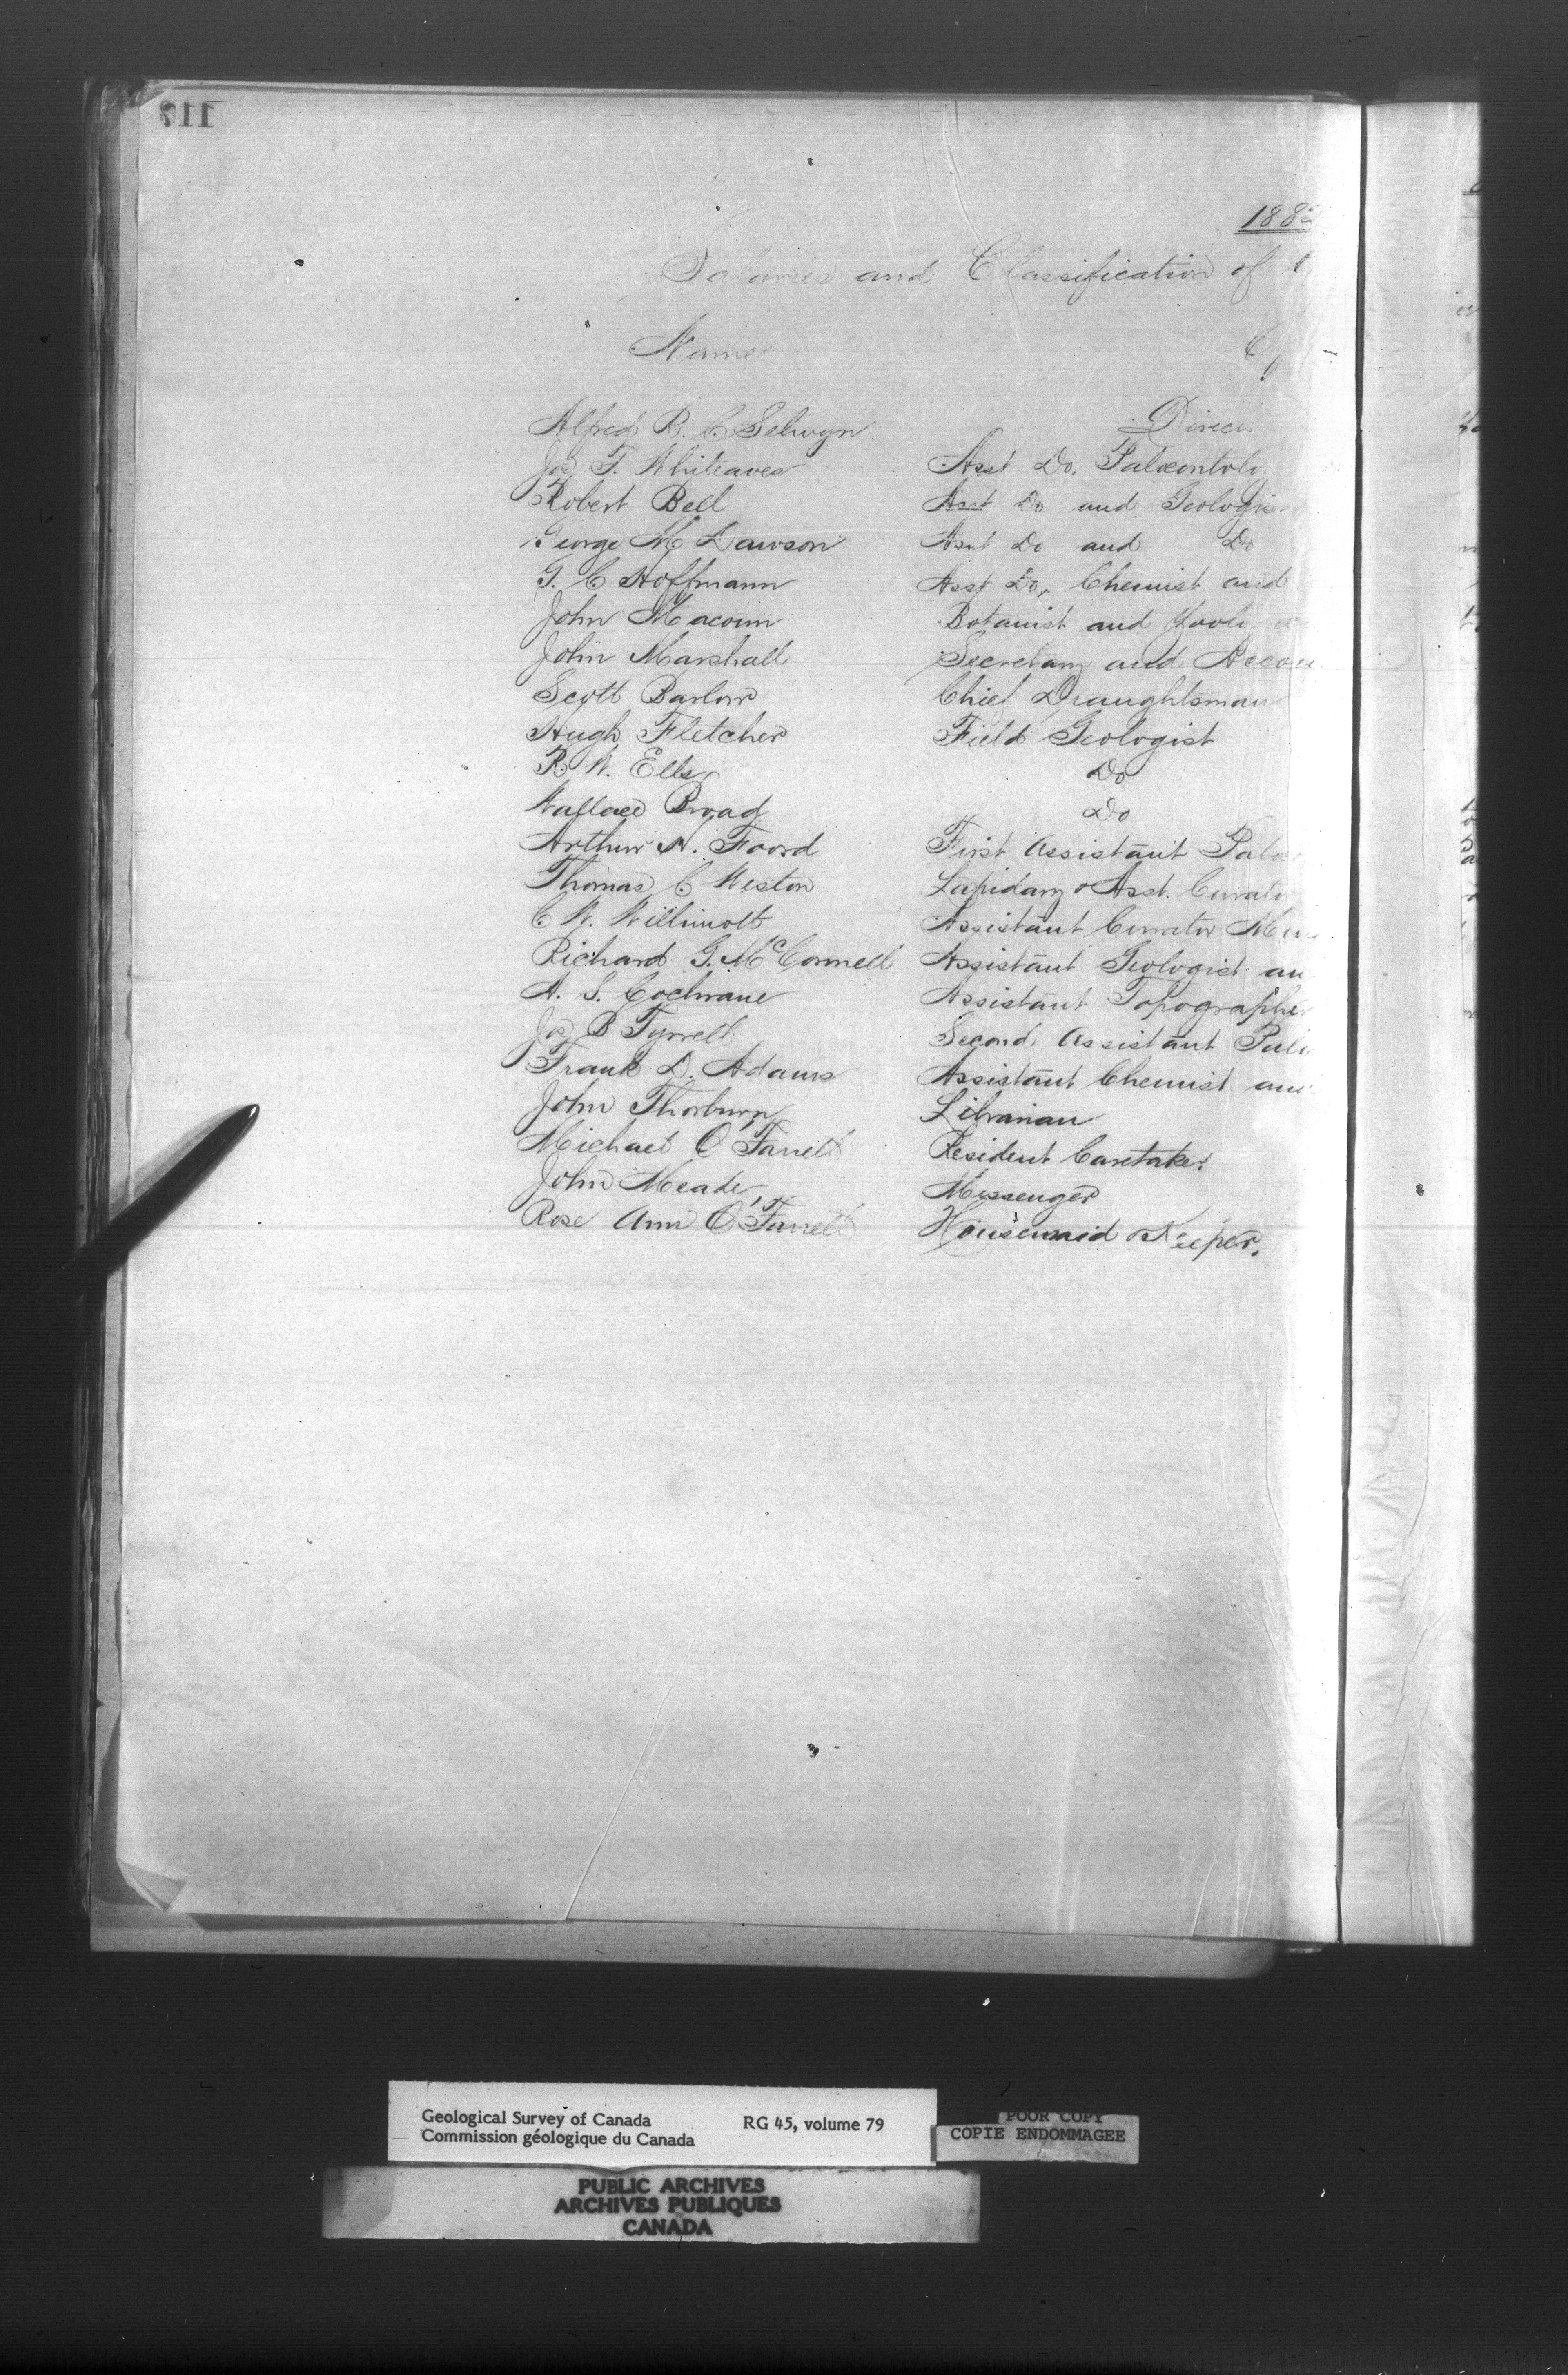 117
1882
Salaries and Classification of
Name
Alfred R. C. Selwyn Direc
Jos. F. Whiteaves Asst Do. Palæontolo
Robert Bell Asst Do and Geologis
George M Dawson Asst Do and Do
G. C Hoffmann Asst Do, Chemist and
John Macoun Botanist and Zoolog
John Marshall Secretary and Accou
Scott Barlow Chief Draughtsman
Hugh Fletcher Field Geologist
R. W. Ells Do
Wallace Broad Do
Arthur H. Foord First Assistant Palæo
Thomas C Weston Lapidary & Asst. Curato
C. W. Willimott Assistant Curator Mus
Richard G. McConnell Assistant Geologist an
A. S. Cochrane Assistant Topographer
Jos B Tyrrell Second Assistant Palæ
Frank D. Adams Assistant Chemist and
John Thorburn Librarian
Michael O'Farrell Resident Caretaker
John Meade Messenger
Rose Ann O'Farrell Housemaid & Keeper.
Geological Survey of Canada RG 45, volume 79
Commission géologique du Canada
POOR COPY
COPIE ENDOMMAGEE
PUBLIC ARCHIVES
ARCHIVES PUBLIQUES
CANADA